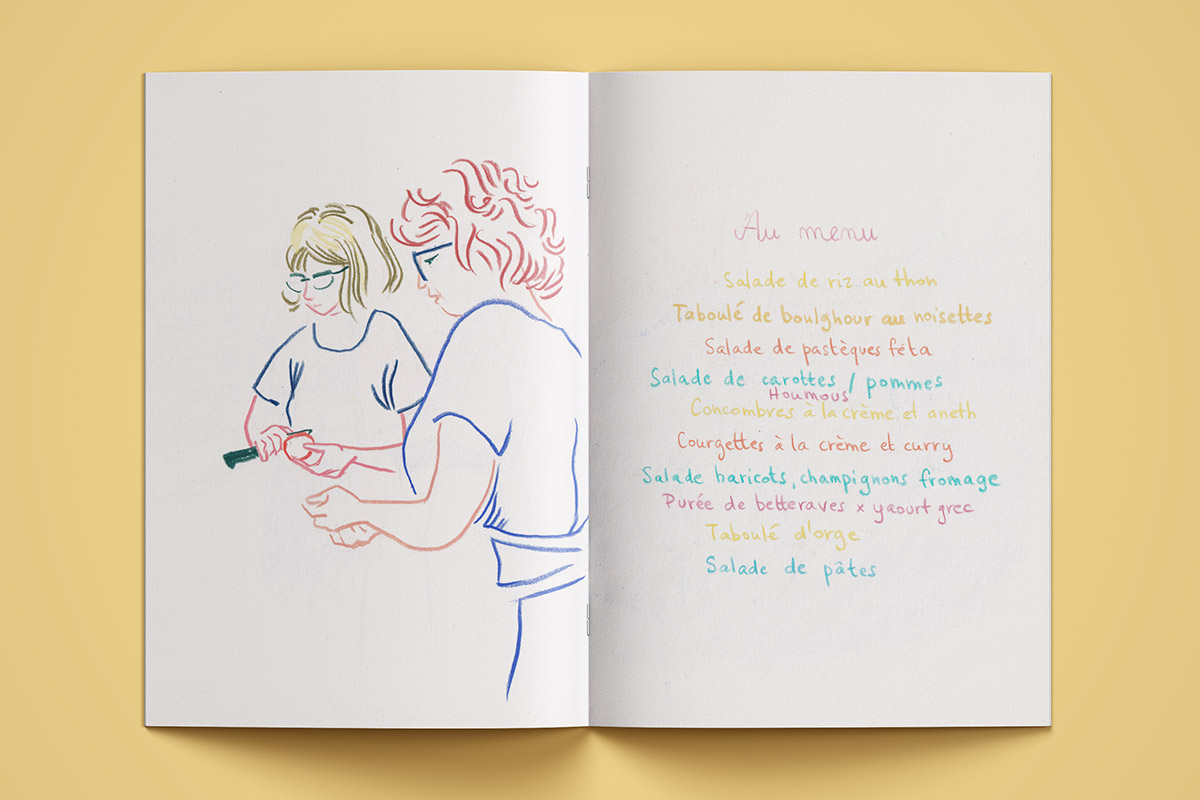 Au menu
Salade de riz au thon
Taboulé de boulghour au noisettes
Salade de pastèques féta
Salade de carottes / pommes
Houmous
Concombres à la crème et aneth
Courgettes à la crème et curry
Salade haricots, champignons fromage
Purée de betteraves x yaourt grec
Taboulé d'orge
Salade de pâtes